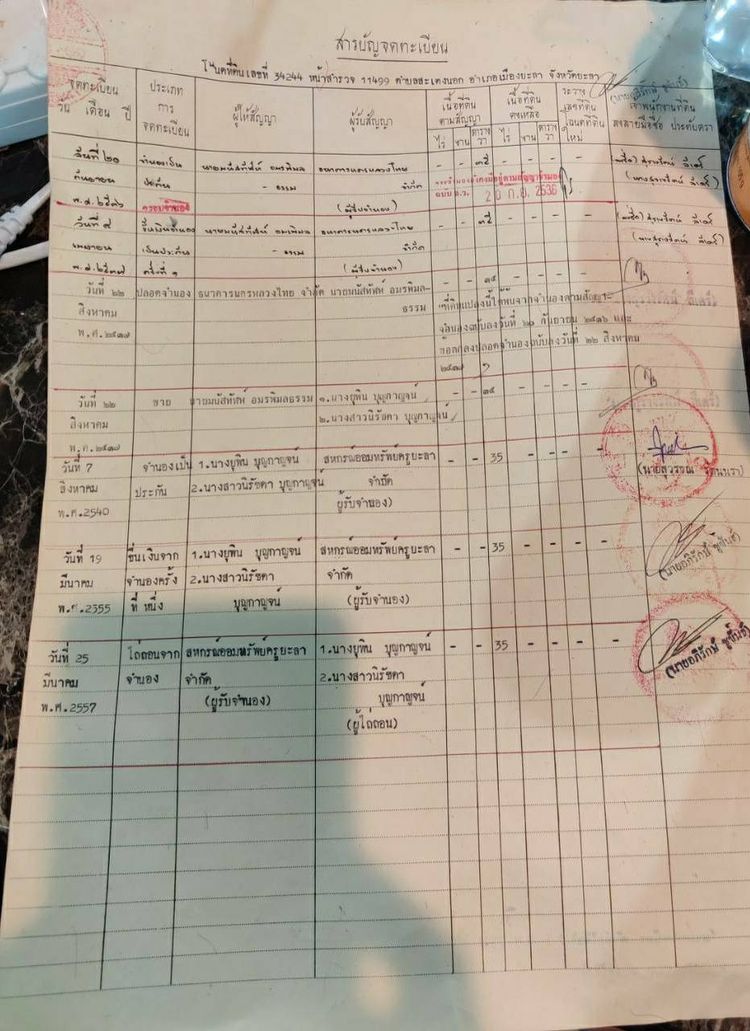 สารบัญจดทะเบียน
โฉนดที่ดินเลขที่ 34244 หน้าสำรวจ 11499 ตำบลสะเตงนอก อำเภอเมืองยะลา จังหวัดยะลา
จดทะเบียน วัน เดือน ปี
ประเภทการจดทะเบียน
ผู้ให้สัญญา
ผู้รับสัญญา
เนื้อที่ดินตามสัญญา
ไร่ งาน ตารางวา
เนื้อที่ดินคงเหลือ
ไร่ งาน ตารางวา
ระวาง เลขที่ดิน โฉนดที่ดินใหม่
เจ้าพนักงานที่ดิน ลงลายมือชื่อ ประทับตรา
วันที่ ๒๐ จำนองเป็น ธนาคารนครหลวงไทย - - ๓๕ - - -
กันยายน ประกัน จำกัด
พ.ศ. ๒๕๓๖ ครอบจำนอง (ผู้รับจำนอง)
20 ก.ย. 2536
วันที่ ๙ ขึ้นเงินจำนอง ธนาคารนครหลวงไทย - - ๓๕ - - -
เมษายน เป็นประกัน จำกัด
พ.ศ. ๒๕๓๗ ครั้งที่ ๑ (ผู้รับจำนอง)
วันที่ ๒๒ ปลอดจำนอง ธนาคารนครหลวงไทย จำกัด นายมนัสทัศน์ อมรพิมล- - - ๓๕ - - -
สิงหาคม ธรรม
ที่ดินแปลงนี้ได้พ้นจากจำนองตามสัญญา-
จำนองฉบับลงวันที่ ๒๐ กันยายน ๒๕๓๖ และ
ข้อตกลงปลอดจำนองฉบับลงวันที่ ๒๒ สิงหาคม
วันที่ ๒๒ ขาย นายมนัสทัศน์ อมรพิมลธรรม ๑.นางยุพิน บุญกาญจน์ - - ๓๕ - - -
สิงหาคม ๒.นางสาวนิรัชดา บุญกาญจน์
วันที่ 7 จำนองเป็น 1.นางยุพิน บุญกาญจน์ สหกรณ์ออมทรัพย์ครูยะลา - - 35 - - - -
สิงหาคม ประกัน 2.นางสาวนิรัชดา บุญกาญจน์ จำกัด
พ.ศ.2540 ผู้รับจำนอง)
วันที่ 19 ขึ้นเงินจาก 1.นางยุพิน บุญกาญจน์ สหกรณ์ออมทรัพย์ครูยะลา - - 35 - - - -
มีนาคม จำนองครั้ง 2.นางสาวนิรัชดา จำกัด
พ.ศ.2555 ที่ หนึ่ง บุญกาญจน์ (ผู้รับจำนอง)
(นายอภิรักษ์ ชูพันธ์)
วันที่ 25 ไถ่ถอนจาก สหกรณ์ออมทรัพย์ครูยะลา 1.นางยุพิน บุญกาญจน์ - - 35 - - - -
มีนาคม จำนอง จำกัด 2.นางสาวนิรัชดา
พ.ศ.2557 (ผู้รับจำนอง) บุญกาญจน์
(ผู้ไถ่ถอน)
(นายอภิรักษ์ ชูพันธ์)